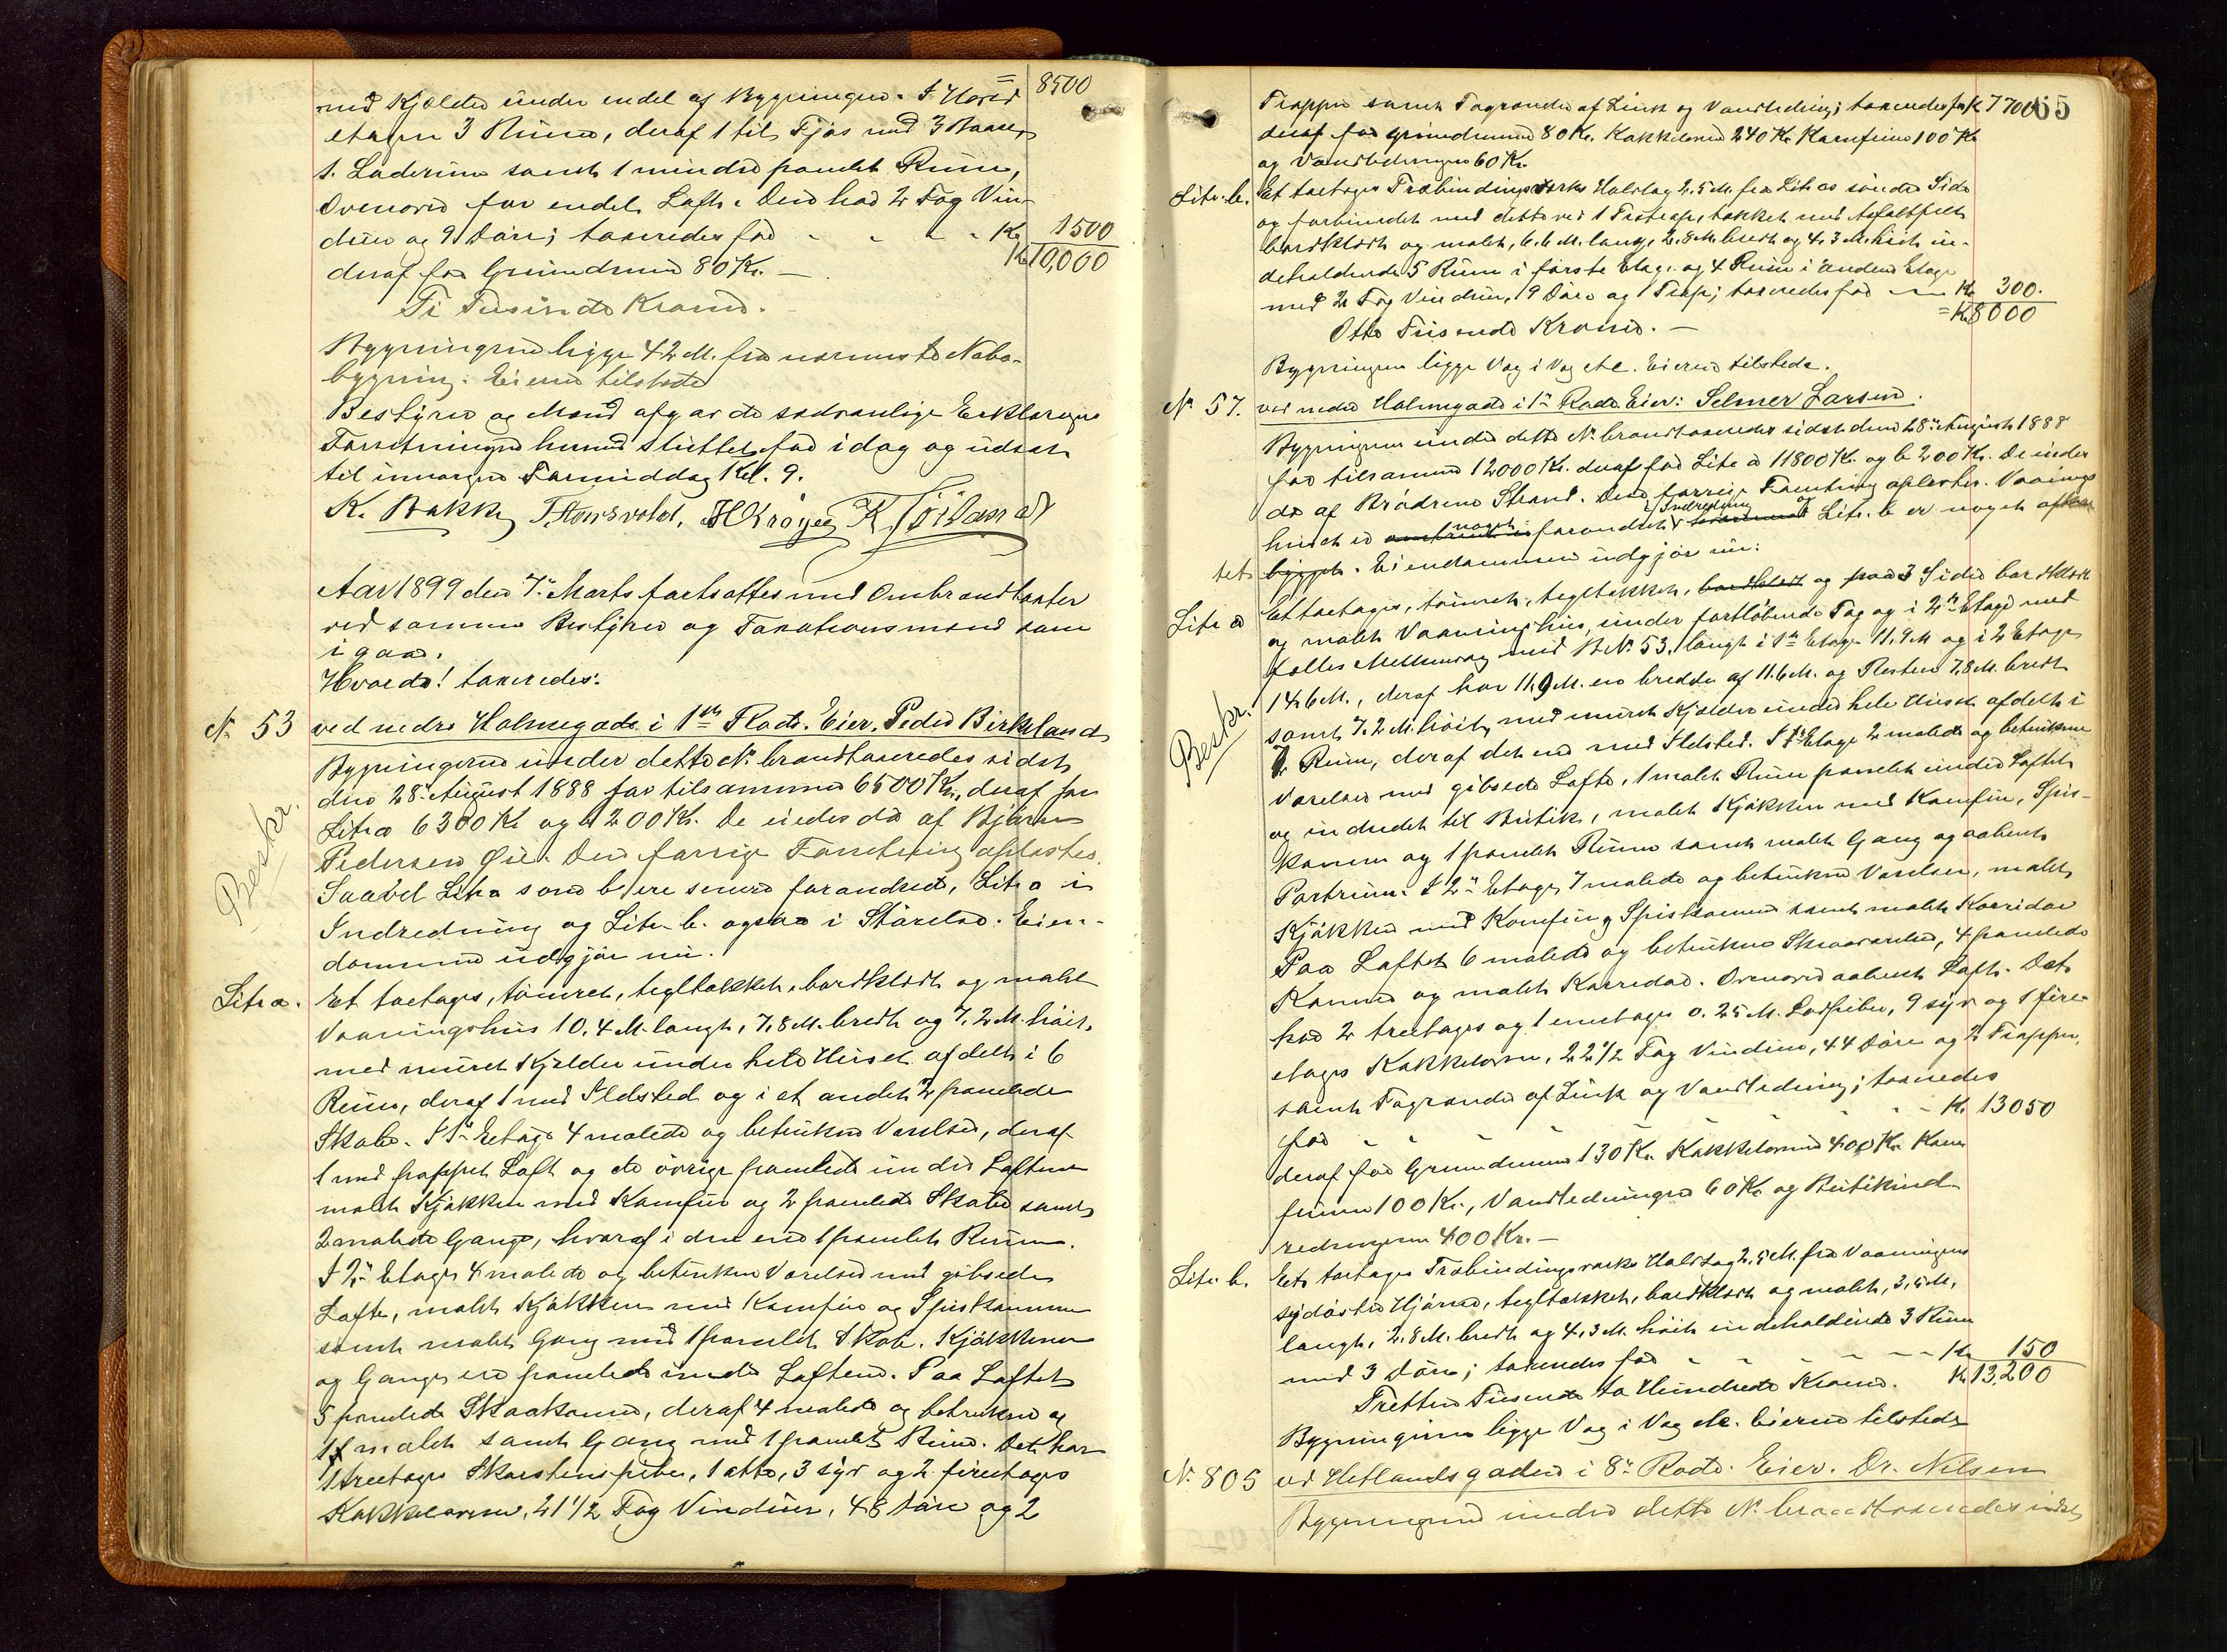 med Kjelder under endel af Bygningen. I Hoved = 8500
etagen 3 Rum, deraf 1 til Fjøs med 3 Baase,
1 Laderum samt 1 mindre panelet Rum,
Ovenover for endel Loft. Den har 2 Fag Vin-
duer og 9 Døre; taxeredes for - - - - Kr 1500
deraf for Grundmuren 80 Kr. — Kr 10,000
Ti Tusinde Kroner.
Bygningerne ligge 42 M. fra nærmeste Nabo-
bygning. Eieren tilstede
Bestyrer og Mænd afgav de sedvanlige Erklæringer
Forretningen hermed sluttet for idag og udsat
til imorgen Formiddag Kl. 9.
K. Bakke
Aar 1899 den 7de Marts fortsattes med Ombrandtaxter
ved samme Bestyrer og Taxationsmænd som
igaar.
Hvorda! taxeredes:
No 53 ved nedre Holmegade i 1ste Rode. Eier: Peder Birkeland
Bygningerne under dette No brandtaxeredes sidst
den 28de August 1888 for tilsammen 6500 Kr., deraf for
Litra a 6300 Kr og b 200 Kr. De eiedes da af Bjørn
Pedersen Øie. Den forrige Forretning oplæstes.
Saavel Litra a som b ere senere forandrede, Litra a i
Indredning og Litr. b. ogsaa i Størrelse. Eien-
dommen udgjør nu.
Beskr.
Litr a. Et toetages, tømret, tegltækket, bordklædt og malet
Vaaningshus 10,4 M. langt, 7,8 M. bredt og 7,2 M. høit,
med muret Kjelder under hele Huset afdelt i 6
Rum, deraf 1 med Ildsted og i et andet 2 panelede
Skabe. I 1ste Etage 4 malede og betrukne Værelser, deraf
1 med pappet Loft og de øvrige panelede under Loftene
malet Kjøkken med Komfur og 2 panelede Skabe samt
2 malede Gange, hvoraf i den ene 1 panelet Rum.
I 2den Etage 4 malede og betrukne Værelser med gibsede
Lofte, malet Kjøkken med Komfur og Spiskammer
samt malet Gang med 1 panelet Skab. Kjøkkener
og Gange ere panelede under Loftene. Paa Loftet
5 panelede Skraakamre, deraf 4 malede og betrukne og
1 malet samt Gang med 1 panelet Rum. Det har
1 treetages Skorstenspibe, 1 otte, 3 syv og 2 fireetages
Kakkelovne, 21 1/2 Fag Vinduer, 48 Døre og 2
65
Trapper samt Tagrender af Zink og Vandledning; taxeredes for Kr 7700
deraf for Grundmuren 80 Kr. Kakkelovnene 240 Kr Komfurene 100 Kr
og Vandledningen 60 Kr.
Litr. b. Et toetages Træbindingsværks Halvtag 2,5 M. fra Litr. a's søndre Side
og forbundet med dette ved 1 Trætrap, tækket med Asfaltfilt
bordklædt og malet, 6,6 M. langt, 2,8 M. bredt og 4,3 M. høit in-
deholdende 5 Rum i første Etage og 4 Rum i anden Etage
med 2 Fag Vinduer, 9 Døre og 1 Trap; taxeredes for — Kr 300.
Otte Tusende Kroner. — = Kr 8000
Bygningerne ligge Væg i Væg etc. Eieren tilstede.
No 57. ved nedre Holmegade i 1ste Rode. Eier: Selmer Larsen.
Bygningerne under dette No brandtaxeredes sidst den 28de August 1888
for tilsammen 12000 Kr. deraf for Litr a 11800 Kr. og b 200 Kr. De eiedes
da af Brødrene Strand. Den forrige Forretning oplæstes. Vaanings
huset er noget forandret i Indredning og Litr. b er noget afkor
tet. Eiendommen udgjør nu:
Beskr.
Litr a Et toetages, tømret, tegltækket, bordklædt og paa 3 Sider bordklædt
og malet Vaaningshus, under fortløbende Tag og i 2den Etage med
fælles Mellemvæg med B No 53, langt i 1ste Etage 11,9 M og i 2 Etage
14,6 M., deraf har 11,9 M. en bredde af 11.6 M. og Resten 7,8 M. bredt
samt 7.2 M. høit, med muret Kjelder under hele Huset afdelt i
7 Rum, deraf det ene med Ildsted. I 1ste Etage 2 malede og betrukne
Værelser med gibsede Lofte, 1 malet Rum panelet under Loftet
og indredet til Butik, malet Kjøkken med Komfur, Spis-
kammer og 1 panelet Rum samt malet Gang og aabent
Portrum. I 2den Etage 7 malede og betrukne Værelser, malet
Kjøkken med Komfur og Spiskammer samt malet Korridor
Paa Loftet 6 malede og betrukne Skraaværelser, 4 panelede
Kamre og malet Korridor. Ovenover aabent Loft. Det
har 2 treetages og 1 enetages 0.25 M. Rørpiber, 9 syv og 1 fire-
etages Kakkelovne, 22 1/2 Fag Vinduer, 44 Døre og 2 Trapper,
samt Tagrender af Zink og Vandledning; taxeredes
for - - - - - - Kr. 13050
deraf for Grundmuren 130 Kr. Kakkelovnene 400 Kr. Kom
furene 100 Kr., Vandledningen 60 Kr. og Butikind-
redningen 400 Kr. —
Litr. b. Et toetages Træbindingsværks Halvtag 2,5 M. fra Vaaningens
sydøstre Hjørne, tegltækket, bordklædt og malet, 3,5 M.
langt, 2,8 M. bredt og 4,3 M. høit indeholdende 3 Rum
med 3 Døre; taxeredes for - - - - - Kr 150
Tretten Tusende to Hundrede Kroner. Kr 13,200
Bygningerne ligge Væg i Væg etc. Eieren tilstede
No 805 ved Hetlandsgaden i 8de Rode. Eier: Dr. Nilsen
Bygningerne under dette No brandtaxeredes sidst